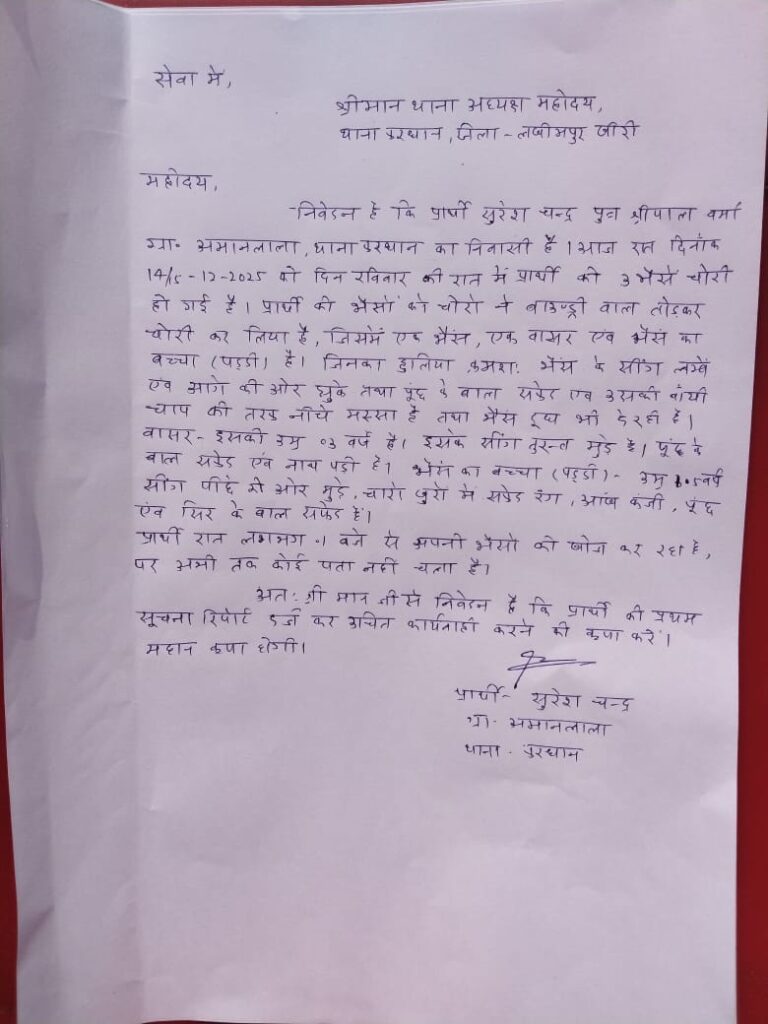 सेवा में,
श्रीमान थाना अध्यक्ष महोदय,
थाना उरधान, जिला - लखीमपुर खीरी
महोदय,
निवेदन है कि प्रार्थी सुरेश चन्द्र पुत्र श्रीपाला वर्मा
ग्रा॰ अमानलाला, थाना उरधान का निवासी है। आज रात दिनाँक
14/15-12-2025 को दिन रविवार की रात में प्रार्थी की 3 भैंसे चोरी
हो गई है। प्रार्थी की भैंसों को चोरो ने बाउण्ड्री वाल तोडकर
चोरी कर लिया है, जिसमें एक भैंस, एक वासर एंव भैंस का
बच्चा (पड्डी) है। जिनका हुलिया क्रमश: भैंस के सींग लम्बें
एंव आगे की ओर झुके तथा पूंछ के बाल सफेद एंव उसकी बाँयी
चाप की तरफ नीचे मस्सा है तथा भैंस दूध भी दे रही है।
वासर - इसकी उम्र 03 वर्ष है। इसके सींग तुरन्त मुडे है। पूंछ के
बाल सफेद एंव नाथ पडी है। भैंस का बच्चा (पड्डी) - उम्र 1.5 वर्ष
सींग पीछे की ओर मुडे, चारो खुरो में सफेद रंग, आंख कंजी, पूंछ
एंव सिर के बाल सफेद हैं।
प्रार्थी रात लगभग 1 बजे से अपनी भैंसो को खोज कर रहा है,
पर अभी तक कोई पता नहीं चला है।
अत: श्री मान जी से निवेदन है कि प्रार्थी की प्रथम
सूचना रिपोर्ट दर्ज कर उचित कार्यवाही करने की कृपा करें।
महान कृपा होगी।
प्रार्थी - सुरेश चन्द्र
ग्रा॰ अमानलाला
थाना - उरधान